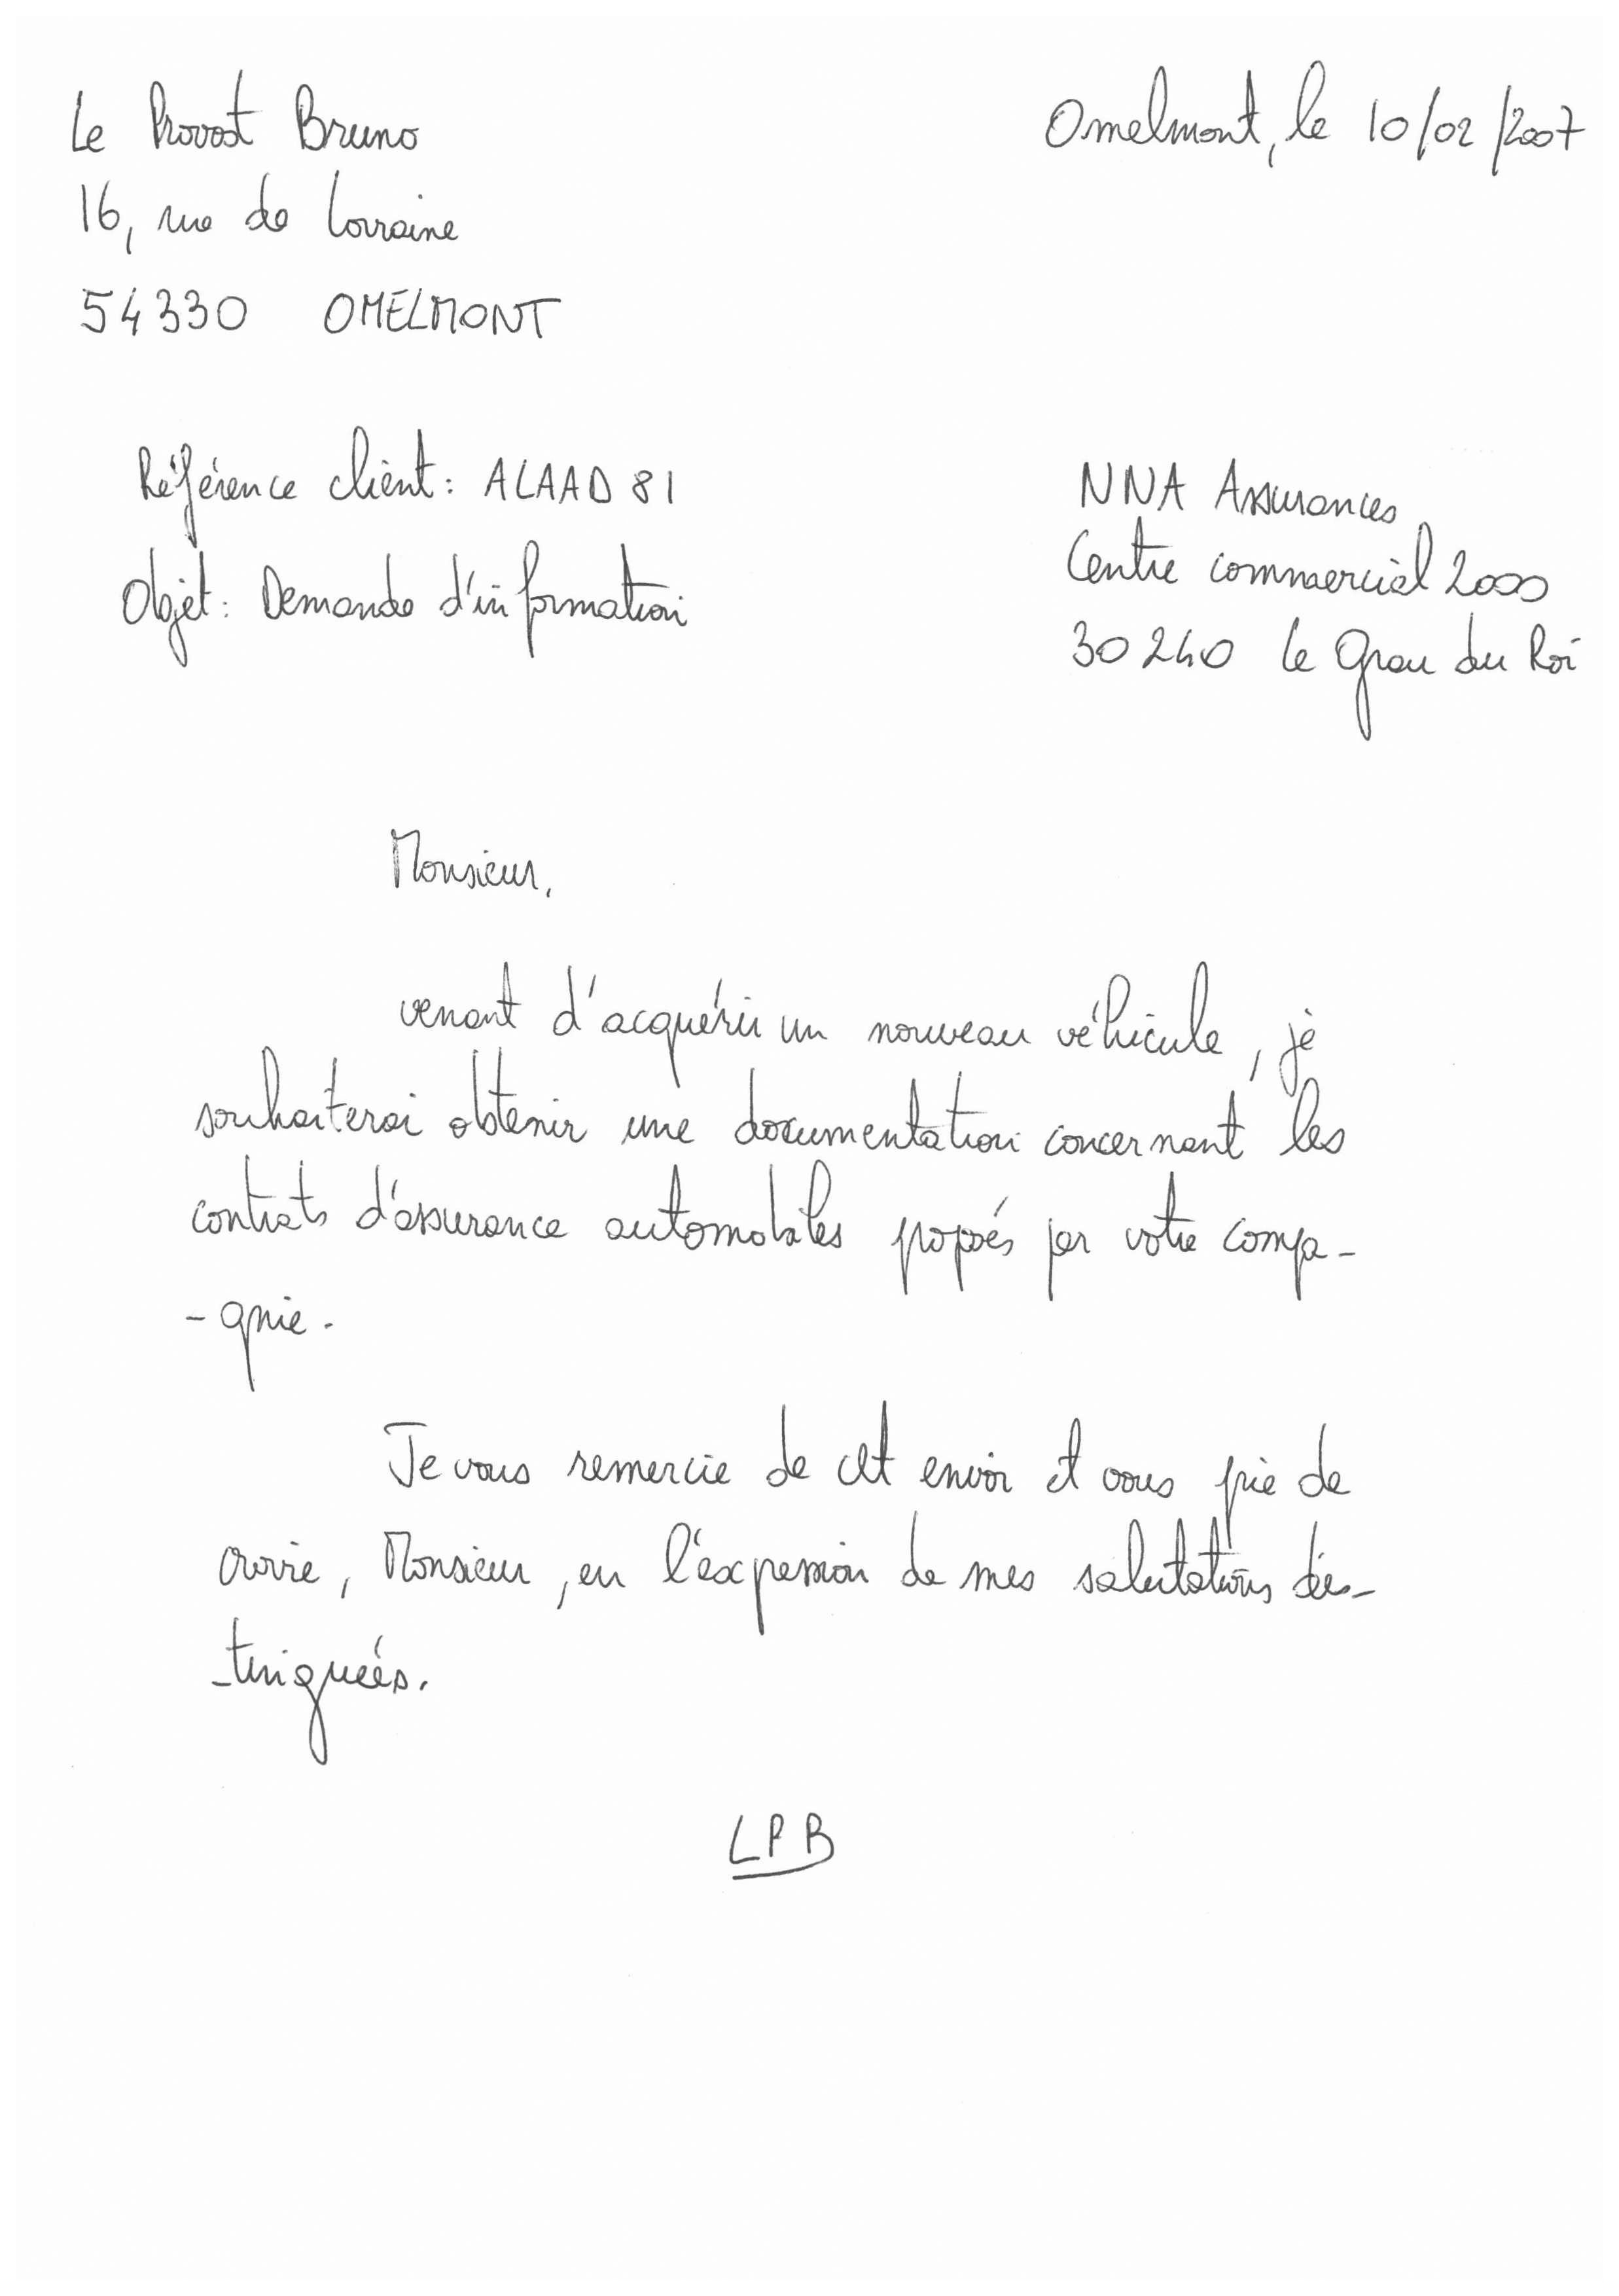 Le Provost Bruno
16, rue de Lorraine
54330 OMELMONT
Omelmont, le 10/02/2007
Référence client : ALAAD 81
Objet : Demande d'information
NNA Assurances
Centre commercial 2000
30240 Le Grau du Roi
Monsieur,
venant d'acquérir un nouveau véhicule, je
souhaiterai obtenir une documentation concernant les
contrats d'assurance automobiles proposés par votre compa-
-gnie.
Je vous remercie de cet envoi et vous prie de
croire, Monsieur, en l'expression de mes salutations dis-
-tinguées.
LPB